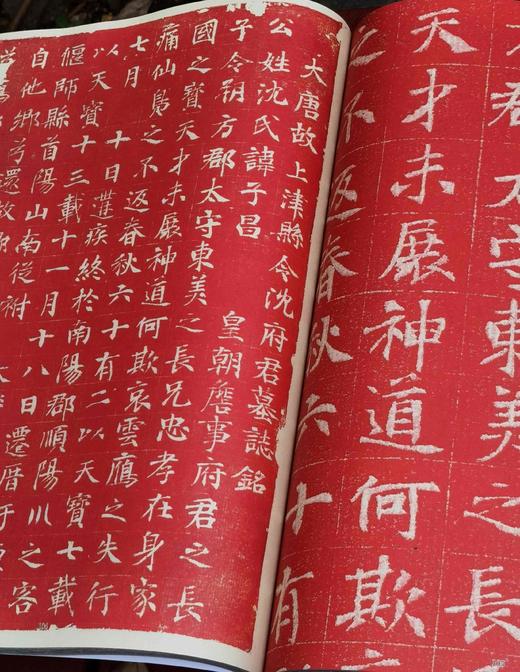 大唐故上津縣令沈府君墓誌銘
公姓沈氏諱子昌 皇朝詹事府君之長
子令朔方郡太守東美之長兄忠孝在身家
國之寶天才未展神道何欺哀雲鴈之失行
痛仙鳧之不返春秋六十有二以天寶七載
七月 十日遘疾終於南陽郡順陽川之客
以天寶十三載十一月十八日遷厝于
偃師縣首陽山南從祔
自他鄉 還故
守東美之長
天才未展神道何欺
之不返春秋六十有